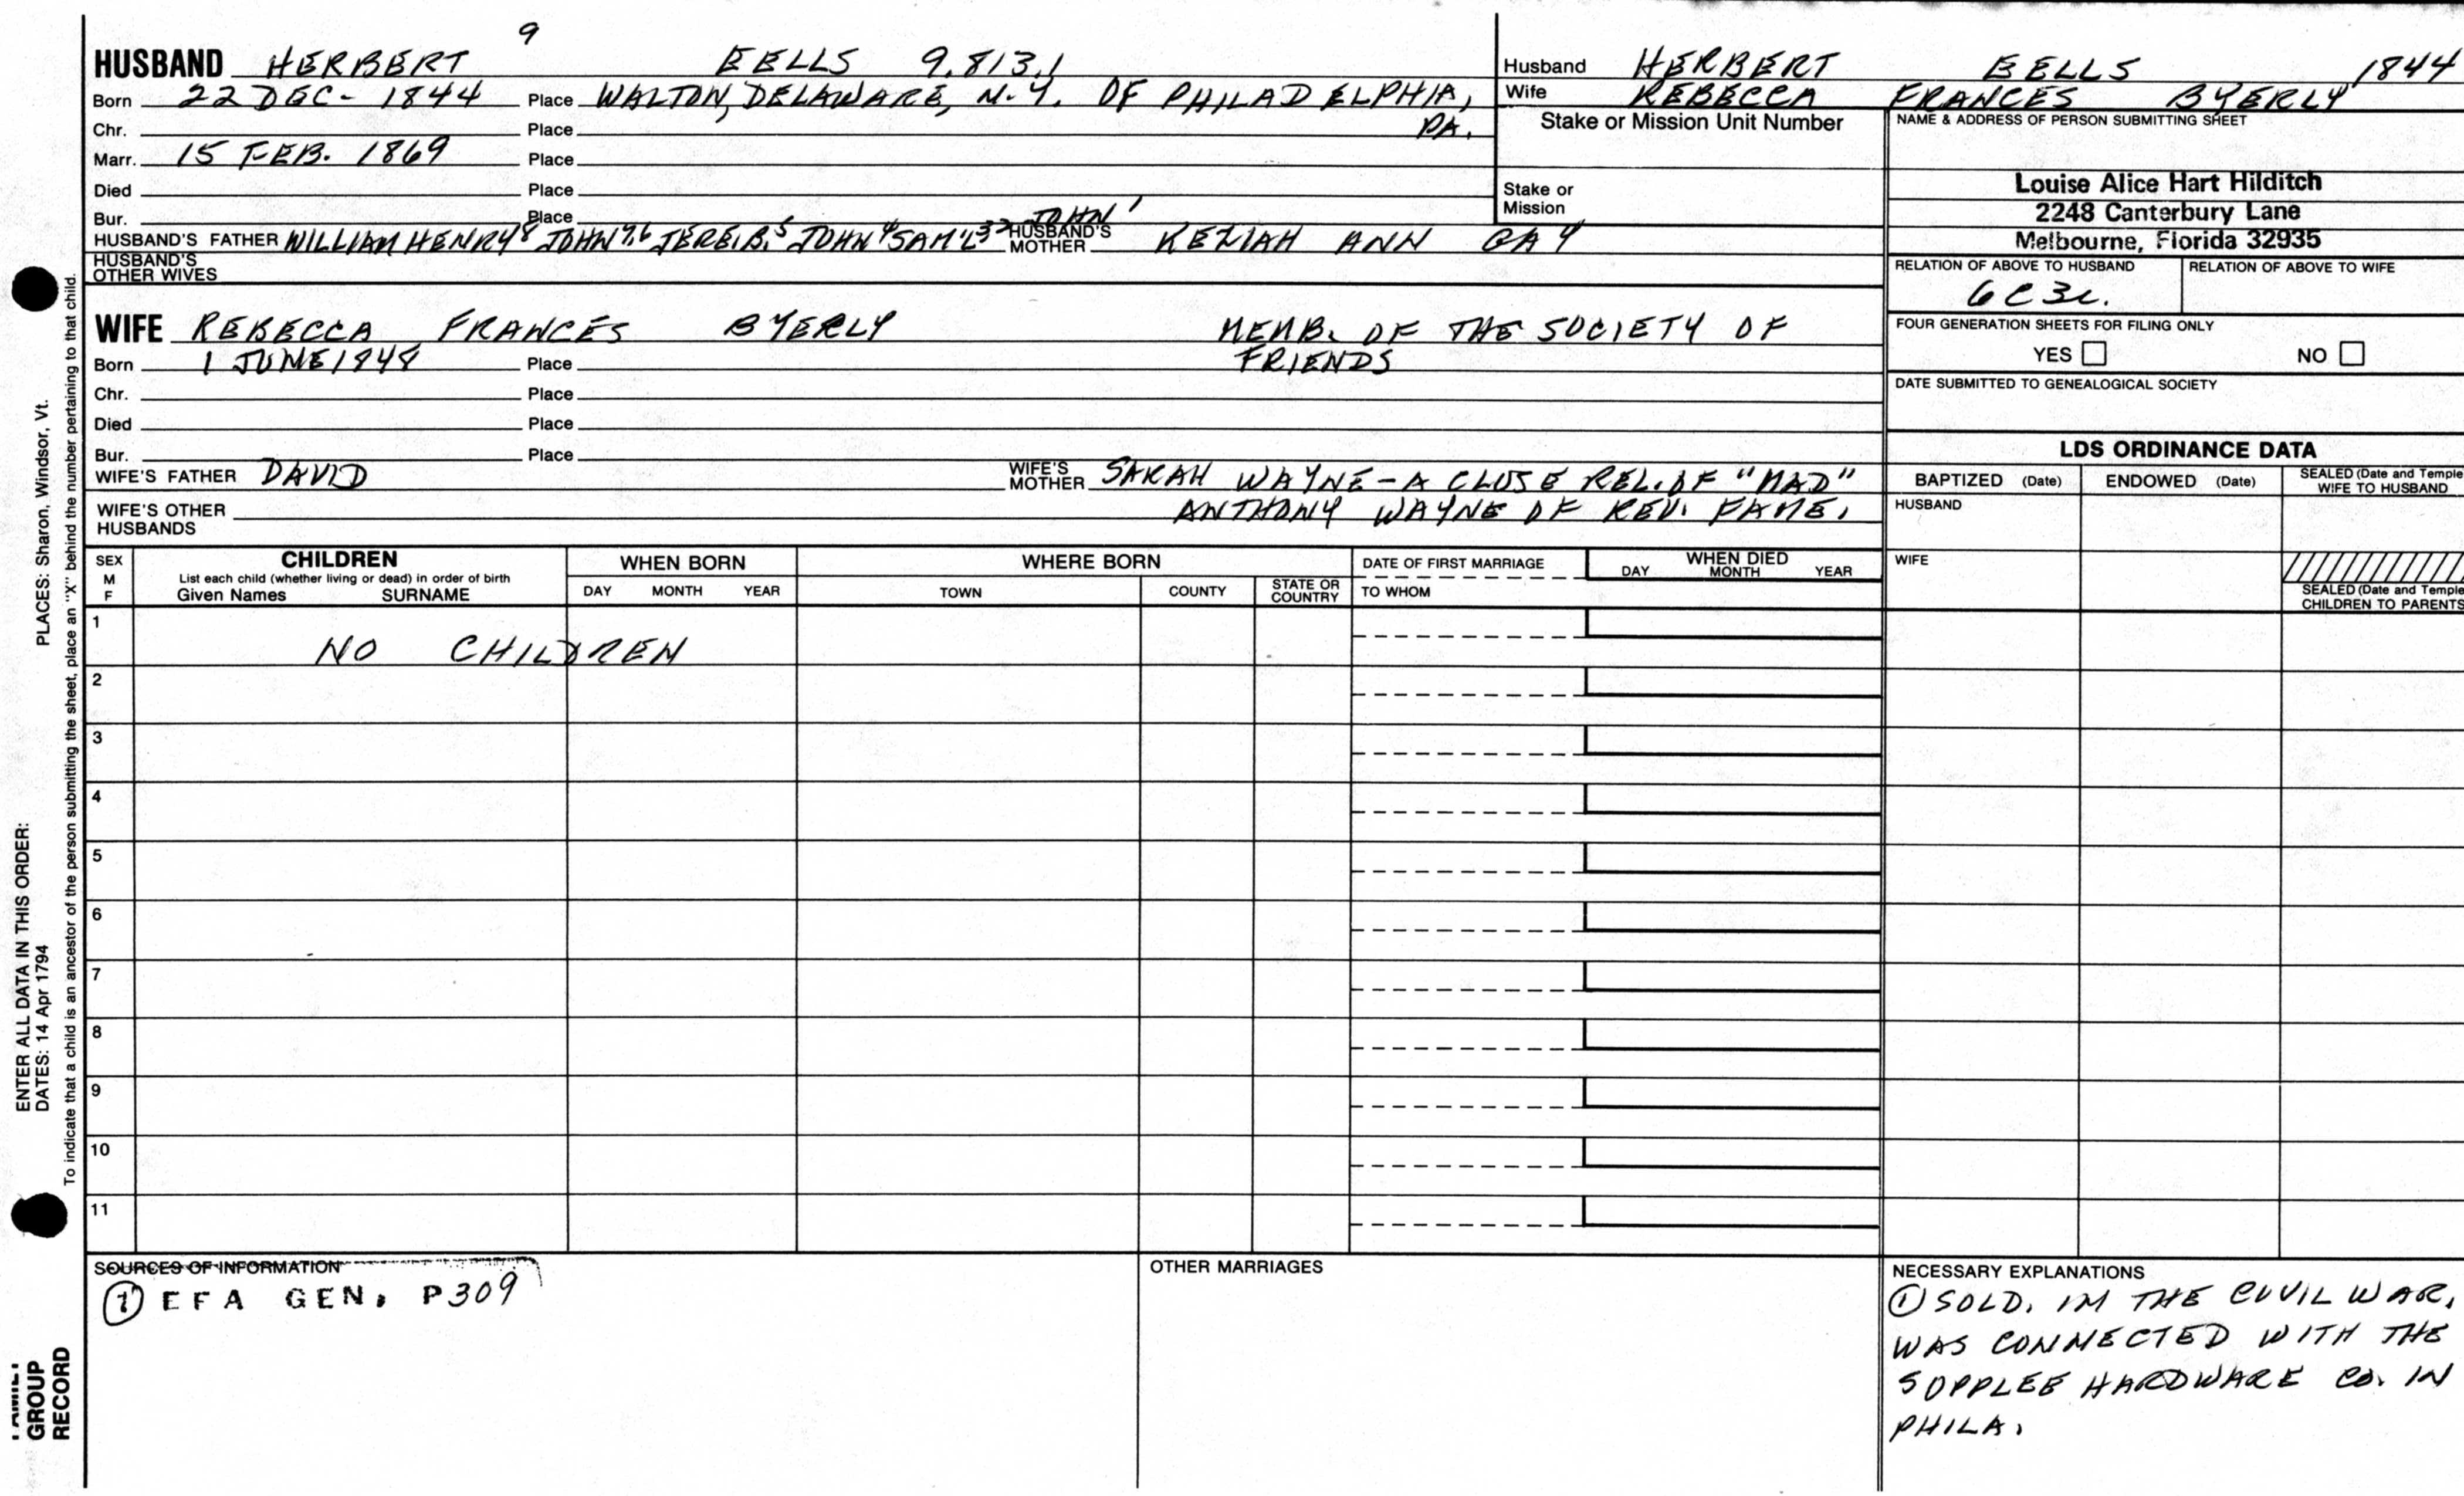 9
HUSBAND HERBERT EELLS 9.813.1
Born 22 DEC- 1844 Place WALTON, DELAWARE, N.Y. OF PHILADELPHIA,
Chr. Place PA.
Marr. 15 FEB. 1869 Place
Died Place
Bur. Place JOHN 1
HUSBAND'S FATHER WILLIAM HENRY 8 JOHN 7.6 JERE.B. 5 JOHN 4 SAM'L 3 2 HUSBAND'S MOTHER KEZIAH ANN GAY
HUSBAND'S
OTHER WIVES
Husband HERBERT EELLS 1844
Wife REBECCA FRANCES BYERLY
Stake or Mission Unit Number
Stake or
Mission
NAME & ADDRESS OF PERSON SUBMITTING SHEET
Louise Alice Hart Hilditch
2248 Canterbury Lane
Melbourne, Florida 32935
RELATION OF ABOVE TO HUSBAND RELATION OF ABOVE TO WIFE
6C3C.
FOUR GENERATION SHEETS FOR FILING ONLY
YES NO
DATE SUBMITTED TO GENEALOGICAL SOCIETY
WIFE REBECCA FRANCES BYERLY MEMB. OF THE SOCIETY OF
Born 1 JUNE 1848 Place FRIENDS
Chr. Place
Died Place
Bur. Place
WIFE'S FATHER DAVID WIFE'S MOTHER SARAH WAYNE - A CLOSE REL. OF "MAD"
WIFE'S OTHER ANTHONY WAYNE OF REV. FAME.
HUSBANDS
LDS ORDINANCE DATA
BAPTIZED (Date) ENDOWED (Date) SEALED (Date and Temple
WIFE TO HUSBAND
HUSBAND
WIFE
SEALED (Date and Temple
CHILDREN TO PARENTS
SEX CHILDREN WHEN BORN WHERE BORN DATE OF FIRST MARRIAGE WHEN DIED
M List each child (whether living or dead) in order of birth DAY MONTH YEAR
F Given Names SURNAME DAY MONTH YEAR TOWN COUNTY STATE OR COUNTRY TO WHOM
1
NO CHILDREN
2
3
4
5
6
7
8
9
10
11
SOURCES OF INFORMATION
1 EFA GEN. P309
OTHER MARRIAGES
NECESSARY EXPLANATIONS
1 SOLD. IN THE CIVIL WAR,
WAS CONNECTED WITH THE
SUPPLEE HARDWARE CO. IN
PHILA.
ENTER ALL DATA IN THIS ORDER:
DATES: 14 Apr 1794 PLACES: Sharon, Windsor, Vt.
To indicate that a child is an ancestor of the person submitting the sheet, place an "X" behind the number pertaining to that child.
FAMILY
GROUP
RECORD